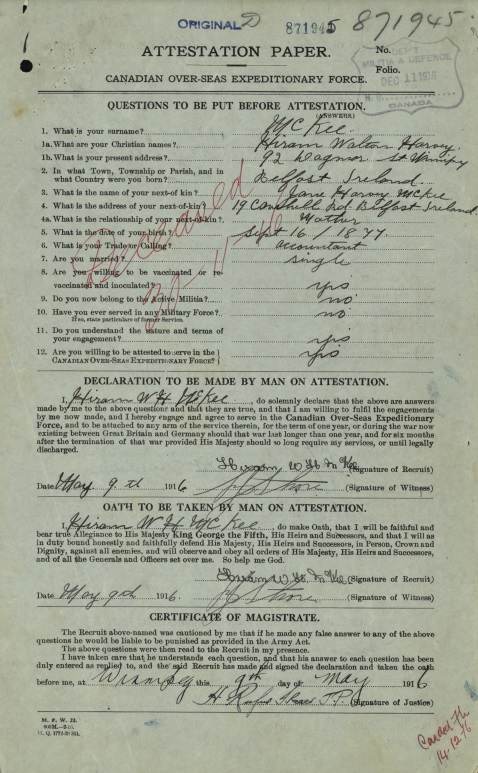 ORIGINAL D 871945 871945
ATTESTATION PAPER.
No.
Folio.
CANADIAN OVER-SEAS EXPEDITIONARY FORCE.
DEPT
MILITIA & DEFENCE
DEC 11 1916
CANADA
QUESTIONS TO BE PUT BEFORE ATTESTATION.
(ANSWERS)
1. What is your surname? McKee
1a. What are your Christian names? Hiram Walton Harvey
1b. What is your present address? 92 Wagner St Winnipeg
2. In what Town, Township or Parish, and in
what Country were you born? Belfast Ireland
3. What is the name of your next-of-kin? Jane Harvey McKee
4. What is the address of your next-of-kin? 19 Rd Belfast Ireland
4a. What is the relationship of your next-of-kin? Mother
5. What is the date of your birth? Sept 16 / 1877
6. What is your Trade or Calling? accountant
7. Are you married? single
8. Are you willing to be vaccinated or re-
vaccinated and inoculated? yes
9. Do you now belong to the Active Militia? no
10. Have you ever served in any Military Force? no
If so, state particulars of former Service.
11. Do you understand the nature and terms of
your engagement? yes
12. Are you willing to be attested to serve in the
CANADIAN OVER-SEAS EXPEDITIONARY FORCE? yes
Deceased
DECLARATION TO BE MADE BY MAN ON ATTESTATION.
I, Hiram W H McKee, do solemnly declare that the above are answers
made by me to the above questions and that they are true, and that I am willing to fulfil the engagements
by me now made, and I hereby engage and agree to serve in the Canadian Over-Seas Expeditionary
Force, and to be attached to any arm of the service therein, for the term of one year, or during the war now
existing between Great Britain and Germany should that war last longer than one year, and for six months
after the termination of that war provided His Majesty should so long require my services, or until legally
discharged.
Hiram W H McKee (Signature of Recruit)
Date May 9th 1916 (Signature of Witness)
OATH TO BE TAKEN BY MAN ON ATTESTATION.
I, Hiram W H McKee, do make Oath, that I will be faithful and
bear true Allegiance to His Majesty King George the Fifth, His Heirs and Successors, and that I will as
in duty bound honestly and faithfully defend His Majesty, His Heirs and Successors, in Person, Crown and
Dignity, against all enemies, and will observe and obey all orders of His Majesty, His Heirs and Successors,
and of all the Generals and Officers set over me. So help me God.
Hiram W H McKee (Signature of Recruit)
Date May 9th 1916. (Signature of Witness)
CERTIFICATE OF MAGISTRATE.
The Recruit above-named was cautioned by me that if he made any false answer to any of the above
questions he would be liable to be punished as provided in the Army Act.
The above questions were then read to the Recruit in my presence.
I have taken care that he understands each question, and that his answer to each question has been
duly entered as replied to, and the said Recruit has made and signed the declaration and taken the oath
before me, at Winnipeg this 9th day of May 1916
J.P. (Signature of Justice)
M. F. W. 23.
H. Q. 1772-39-
14-12-16